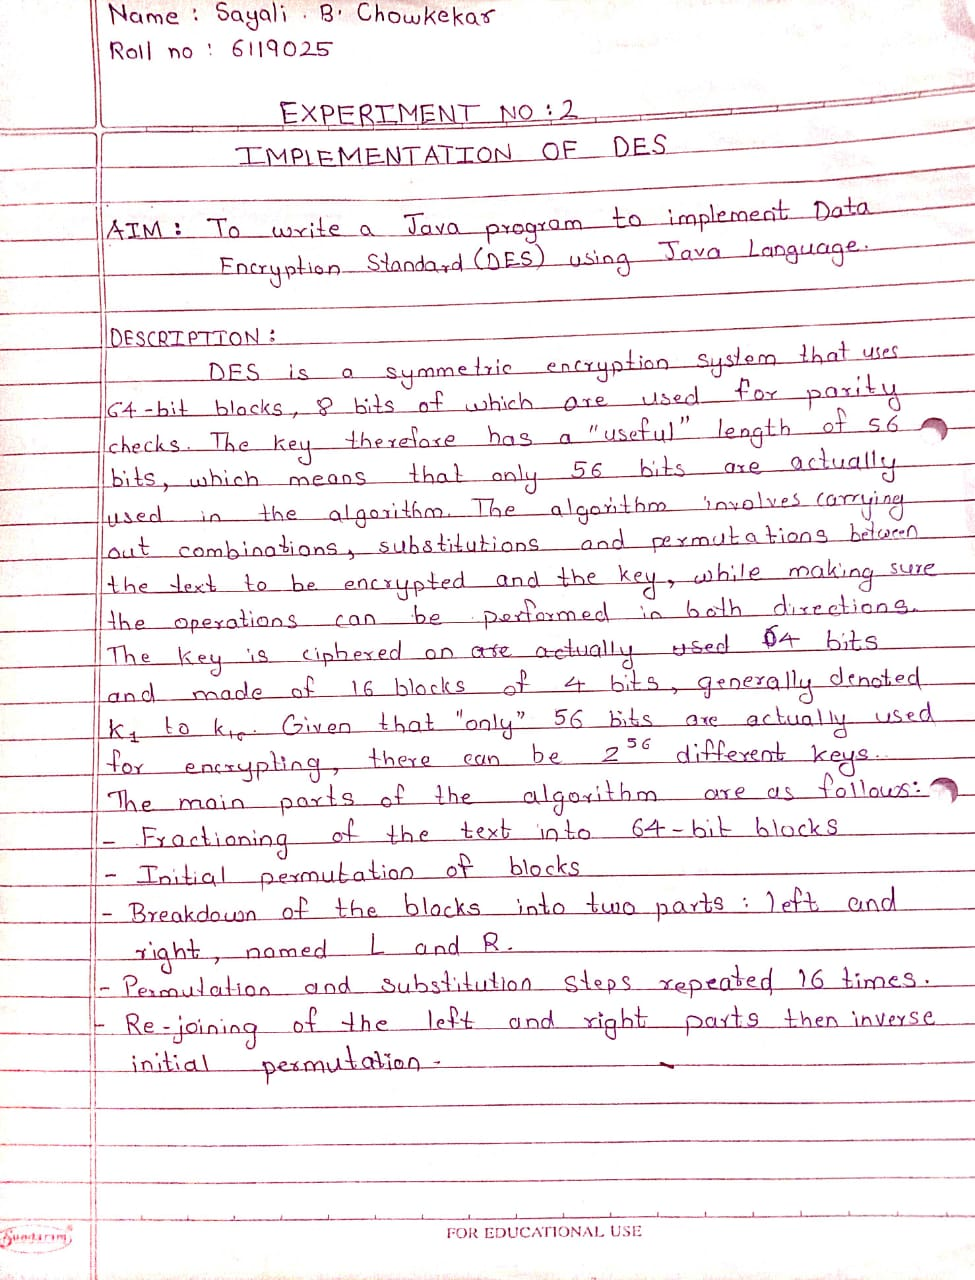 Name : Sayali . B. Chowkekar
Roll no : 6119025
EXPERIMENT NO : 2
IMPLEMENTATION OF DES
AIM : To write a Java program to implement Data
Encryption Standard (DES) using Java Language.
DESCRIPTION :
DES is a symmetric encryption system that uses
64-bit blocks, 8 bits of which are used for parity
checks. The key therefore has a "useful" length of 56
bits, which means that only 56 bits are actually
used in the algorithm. The algorithm involves carrying
out combinations, substitutions and permutations between
the text to be encrypted and the key, while making sure
the operations can be performed in both directions.
The key is ciphered on are actually used 64 bits
and made of 16 blocks of 4 bits, generally denoted
K1 to k16. Given that "only" 56 bits are actually used
for encrypting, there can be 2^56 different keys.
The main parts of the algorithm are as follows:
- Fractioning of the text into 64-bit blocks
- Initial permutation of blocks
- Breakdown of the blocks into two parts : left and
right, named L and R.
- Permutation and substitution steps repeated 16 times.
- Re-joining of the left and right parts then inverse
initial permutation.
Sundaram
FOR EDUCATIONAL USE